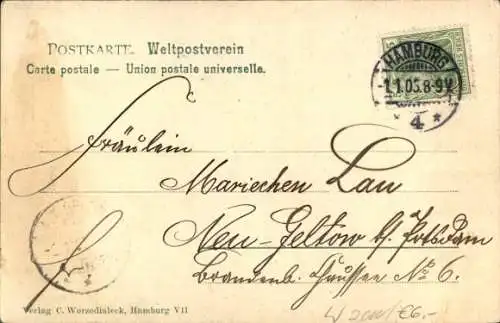 POSTKARTE. Weltpostverein
Carte postale — Union postale universelle.
HAMBURG
1.1.05.8-9V.
* 4 *
Fräulein
Mariechen Lau
Neu-Geltow b/ Potsdam
Brandenb. Chaussee No 6.
Verlag C. Worzedialeck, Hamburg VII
€6,-